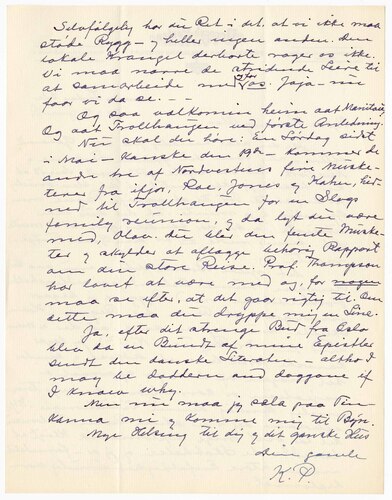 Selvfølgelig har du Ret i det, at vi ikke maa
støde Rygg - og heller ingen anden. Den
lokale Krangel derborte rager os ikke.
Vi maa narre de stridende Leire til
at samarbeide med og for os. Jaja - nu
faar vi da se. - - -
Og saa velkommen heim aat Manitou,
Og aat Trollhaugen ved første Anledning.
Nu skal du høre: En Lørdag sidst
i Mai - kanske den 19de - kommer de
andre tre af Nordvestens fire Musket-
terer fra ifjor, Roe, Jones og Hahn, hid
ned til Trollhaugen for en Slags
family reunion, og da lyt du være
med, Olav. Du blev den femte Muske-
ter og skylder at aflægge behørig Rapport
om den store Reise. Prof. Thompson
har lovet at være med og, for nogen
maa se efter, at det gaar rigtig til. Om
dette maa du dryppe mig en Line.
Ja, efter dit strenge Bud fra Oslo
blev da en Bundt af mine Epistler
sendt den danske Literaten - altho I
may be doddern and doggone if
I know why.
Men nu maa jeg sæla paa
kanna mi og komme mig til Byn.
Mye Helsing til dig og dit ganske Hus
Din gamle
K. P.